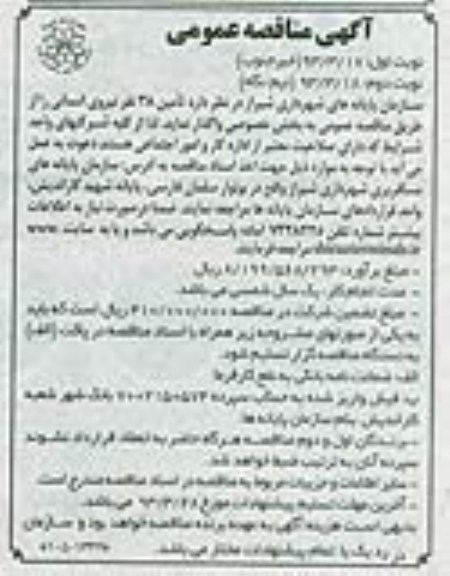 آگهی مناقصه عمومی
نوبت اول: ۹۳/۳/۱۷ (خبر جنوب)
نوبت دوم: ۹۳/۳/۱۸ (نیم نگاه)
سازمان پایانه های شهرداری شیراز در نظر دارد تأمین ۳۸ نفر نیروی انسانی را از
طریق مناقصه عمومی به بخش خصوصی واگذار نماید. لذا از کلیه شرکتهای واجد
شرایط که دارای صلاحیت معتبر از اداره کار و امور اجتماعی هستند دعوت به عمل
می آید با توجه به موارد ذیل جهت اخذ اسناد مناقصه به آدرس: سازمان پایانه های
مسافربری شهرداری شیراز واقع در بولوار سلمان فارسی، پایانه شهید کاراندیش،
واحد قراردادهای سازمان پایانه ها مراجعه نمایند. ضمنا در صورت نیاز به اطلاعات
بیشتر شماره تلفن آماده پاسخگویی می باشد و یا به سایت www.
مراجعه فرمایند.
- مبلغ برآورد: ریال
- مدت انجام کار: یک سال شمسی می باشد.
- مبلغ تضمین شرکت در مناقصه ۴۱۰/۰۰۰/۰۰۰ ریال است که باید
به یکی از صورتهای مشروحه زیر همراه با اسناد مناقصه در پاکت (الف)
به دستگاه مناقصه گزار تسلیم شود.
الف: ضمانت نامه بانکی به نفع کارفرما
ب: فیش واریز شده به حساب سپرده بانک شهر شعبه
کاراندیش، بنام سازمان پایانه ها.
- برندگان اول و دوم مناقصه هرگاه حاضر به انعقاد قرارداد نشوند
سپرده آنان به ترتیب ضبط خواهد شد.
- سایر اطلاعات و جزییات مربوط به مناقصه در اسناد مناقصه مندرج است.
- آخرین مهلت تسلیم پیشنهادات مورخ ۹۳/۳/۲۸ می باشد.
بدیهی است هزینه آگهی به عهده برنده مناقصه خواهد بود و سازمان
در رد یک یا تمام پیشنهادات مختار می باشد.